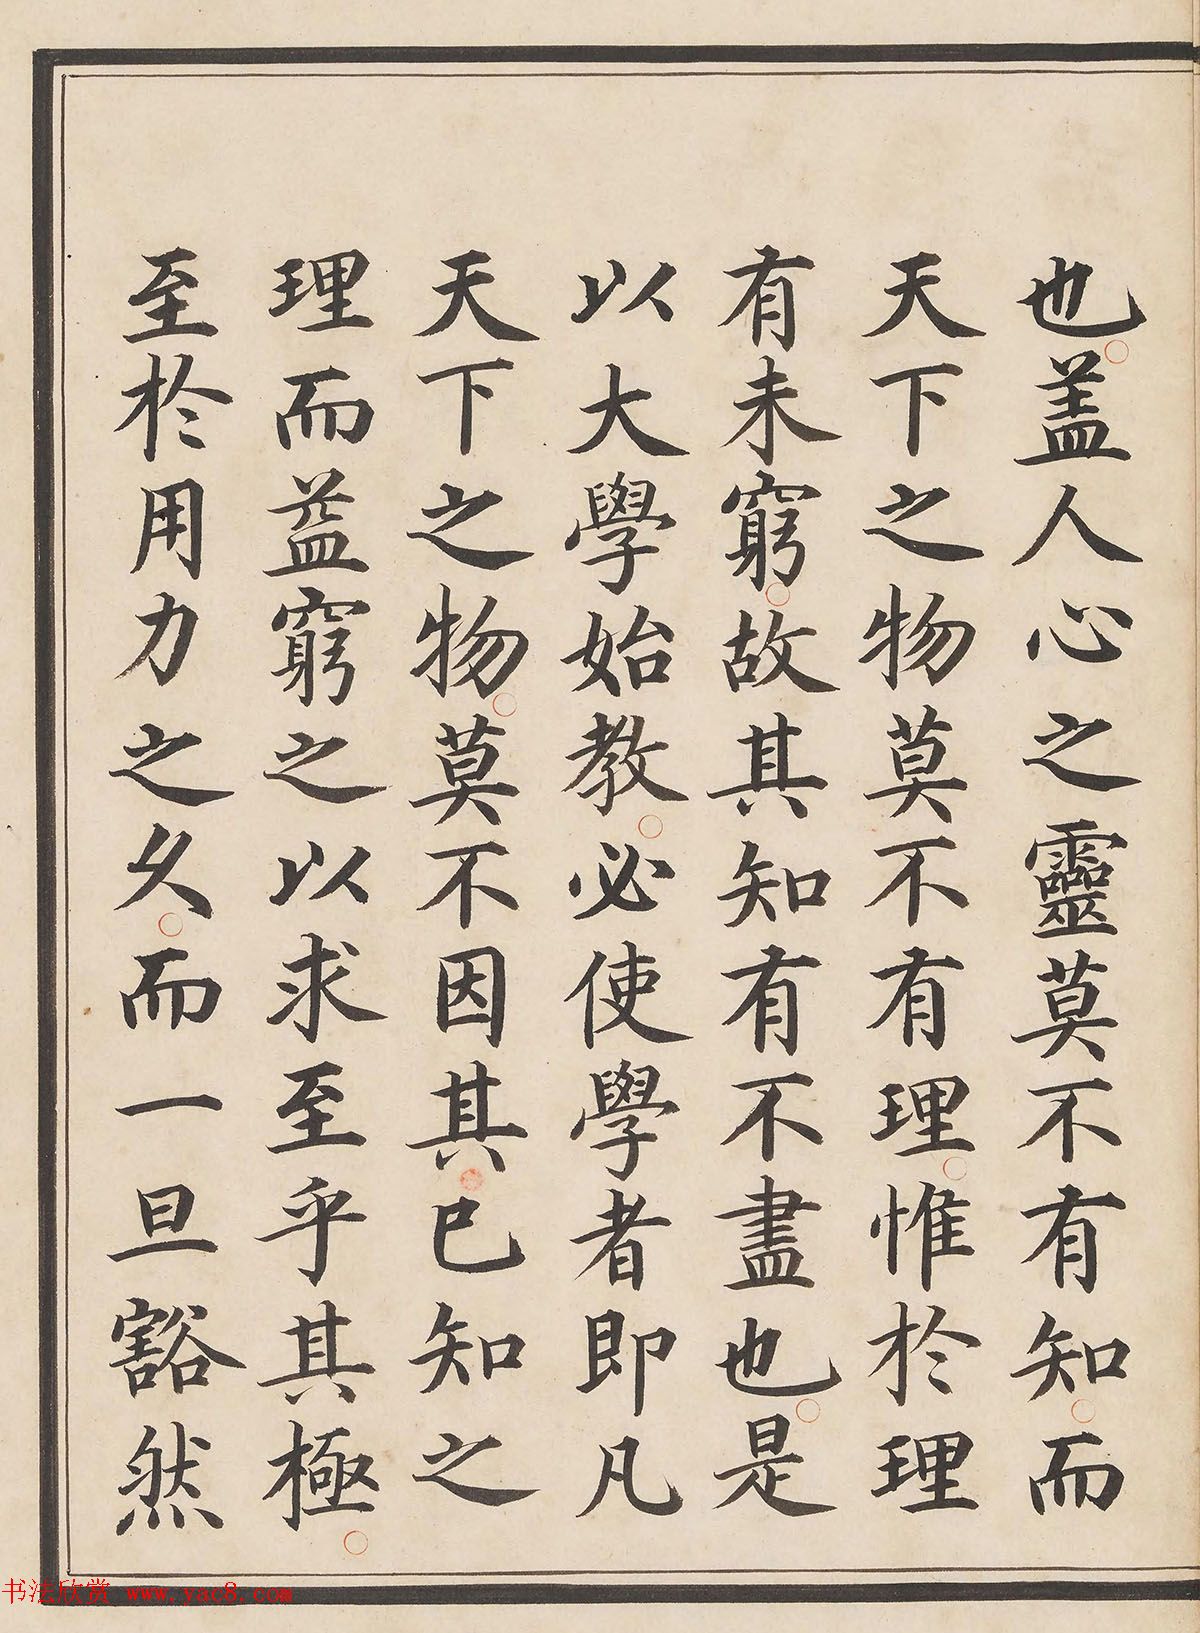 也蓋人心之靈莫不有知而
天下之物莫不有理惟於理
有未窮故其知有不盡也是
以大學始教必使學者即凡
天下之物莫不因其已知之
理而益窮之以求至乎其極
至於用力之久而一旦豁然
书法欣赏 www.yac8.com